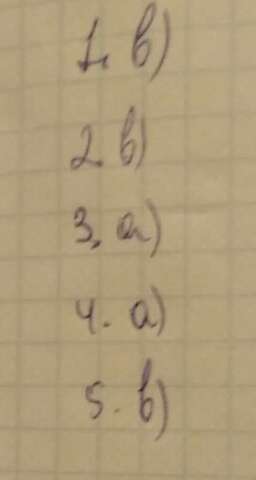 1. в)
2. в)
3. а)
4. а)
5. в)